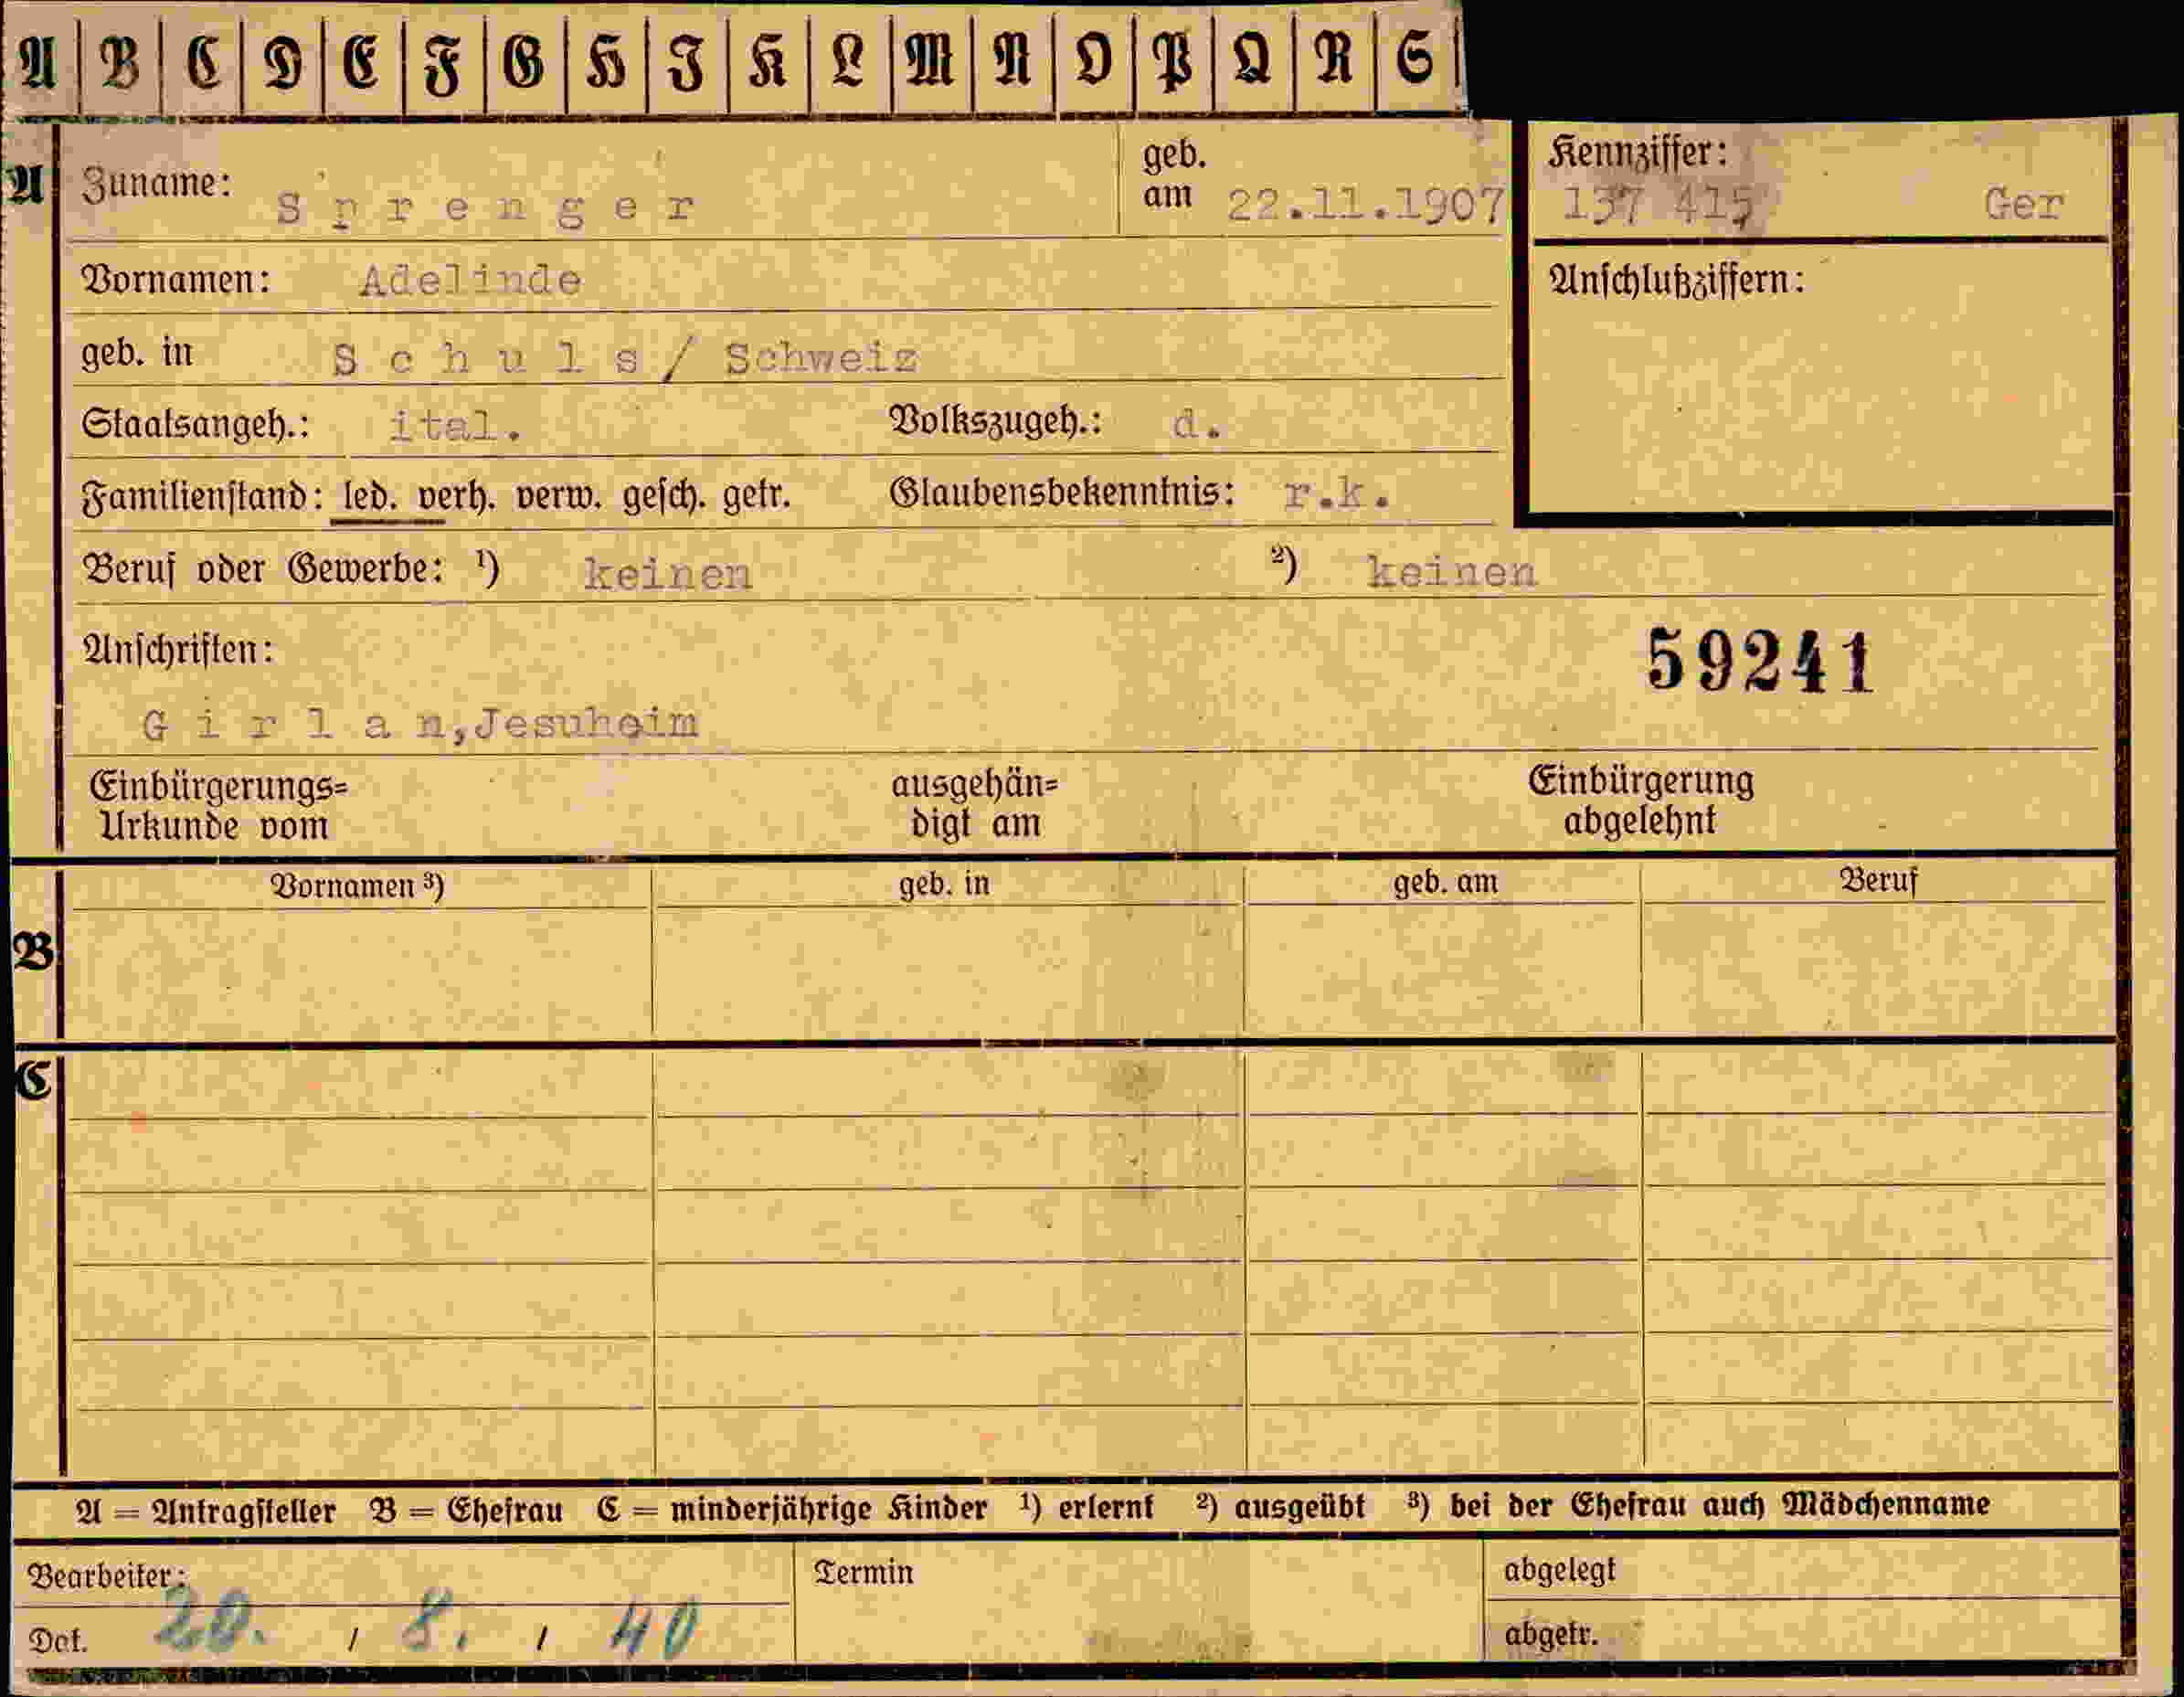 A B C D E F G H I K L M N O P Q R S
A Zuname: Sprenger geb. am 22.11.1907 Kennziffer: 137 415 Ger
Vornamen: Adelinde Anschlußziffern:
geb. in Schuls/ Schweiz
Staatsangeh.: ital. Volkszugeh.: d.
Familienstand: led. verh. verw. gesch. getr. Glaubensbekenntnis: r.k.
Beruf oder Gewerbe: ¹) keinen ²) keinen
Anschriften: 59241
Girlan,Jesuheim
Einbürgerungs= ausgehän= Einbürgerung
Urkunde vom digt am abgelehnt
Vornamen ³) geb. in geb. am Beruf
B
C
A = Antragsteller B = Ehefrau C = minderjährige Kinder ¹) erlernt ²) ausgeübt ³) bei der Ehefrau auch Mädchenname
Bearbeiter: Termin abgelegt
Dat. 20. / 8. / 40 abgetr.